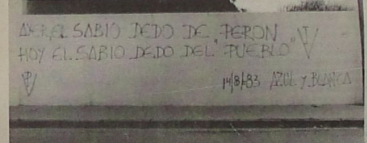 AYER EL SABIO DEDO DE PERON
HOY EL SABIO DEDO DEL "PUEBLO"
14/8/83 AZUL Y BLANCA